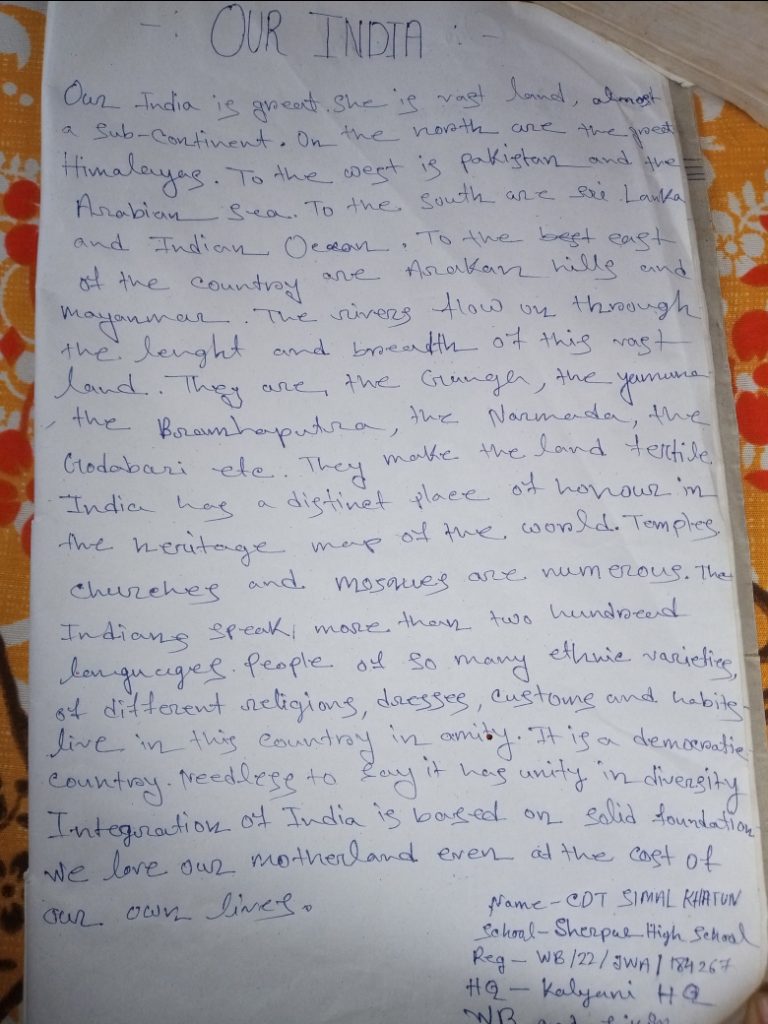 -: OUR INDIA :-
Our India is great. She is vast land, almost
a Sub-Continent. On the north are the great
Himalayas. To the west is pakistan and the
Arabian Sea. To the south are Sri Lanka
and Indian Ocean. To the best east
of the country are Arakan hills and
mayanmar. The rivers flow on through
the lenght and breadth of this vast
land. They are, the Ganga, the yamuna
, the Bramhaputra, the Narmada, the
Godabari etc. They make the land fertile.
India has a distinct place of honour in
the heritage map of the world. Temples
churches and mosques are numerous. The
Indians speak, more than two hundread
languages. people of so many ethnic varieties,
of different religions, dresses, customs and habits
live in this country in amity. It is a democratic
country. Needless to say it has unity in diversity
Integration of India is based on solid foundation
we love our motherland even at the cost of
our own lives.
Name - CDT SIMAL KHATUN
School - Sherpur High School
Reg - WB/22/JWA/184267
HQ - Kalyani HQ
WB and